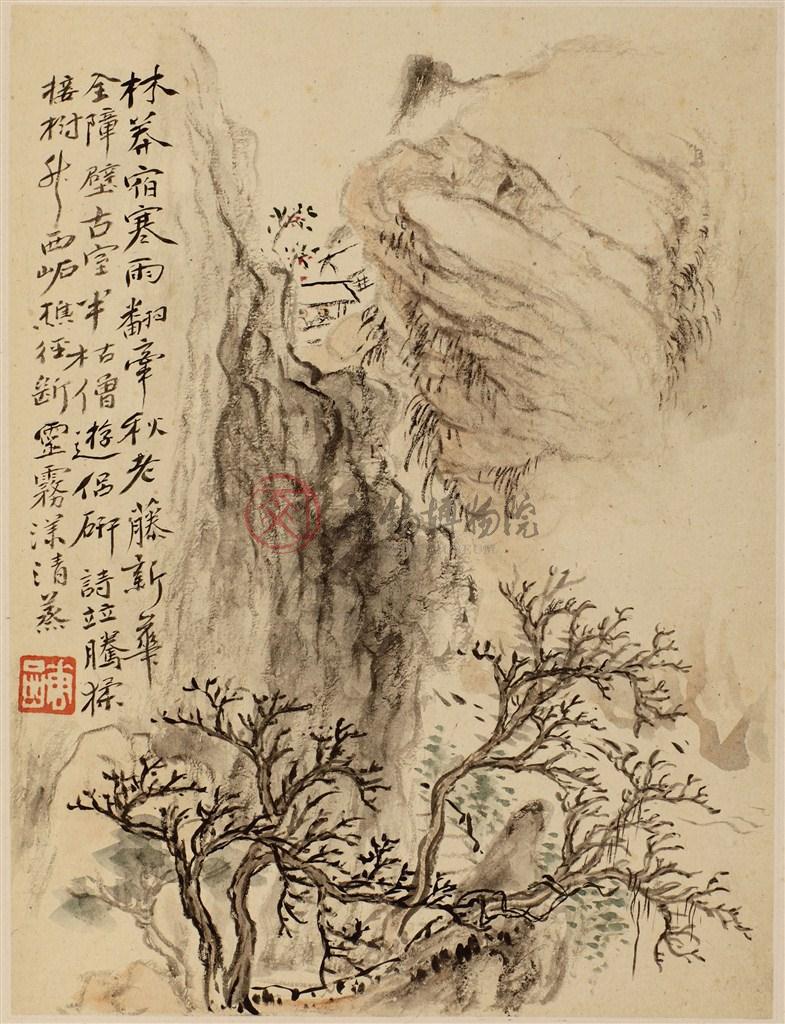 林莽宿寒雨翻牽秋老藤新華
全障壁古室半枯僧遊侶研詩竝騰猱
接樹升西樵徑斷霧清蒸
錫博物院